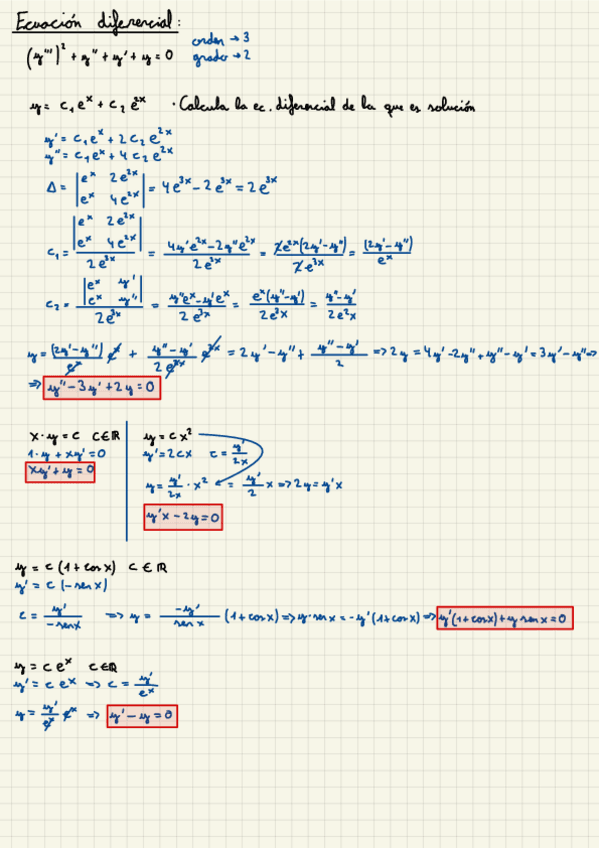 Ecuación diferencial:
(y''')² + y'' + y' + y = 0
orden → 3
grado → 2
y = c₁eˣ + c₂e²ˣ · Calcula la ec. diferencial de la que es solución
y' = c₁eˣ + 2c₂e²ˣ
y'' = c₁eˣ + 4c₂e²ˣ
Δ = |eˣ 2e²ˣ; eˣ 4e²ˣ| = 4e³ˣ - 2e³ˣ = 2e³ˣ
c₁ = |eˣ 2e²ˣ; eˣ 4e²ˣ| / 2e³ˣ = (4y'e²ˣ - 2y''e²ˣ) / 2e³ˣ = 2e²ˣ(2y' - y'') / 2·e³ˣ = (2y' - y'') / eˣ
c₂ = |eˣ y'; eˣ y''| / 2e³ˣ = (y''eˣ - y'eˣ) / 2e³ˣ = eˣ(y'' - y') / 2e³ˣ = (y'' - y') / 2e²ˣ
y = (2y' - y'') / eˣ eˣ + (y'' - y') / 2e²ˣ e²ˣ = 2y' - y'' + (y'' - y') / 2 => 2y = 4y' - 2y'' + y'' - y' = 3y' - y'' =>
=> y'' - 3y' + 2y = 0
x · y = c c∈ℝ
1 · y + xy' = 0
xy' + y = 0
y = cx²
y' = 2cx c = y' / 2x
y = y' / 2x · x² = y' / 2 x => 2y = y'x
y'x - 2y = 0
y = c (1 + cos x) c ∈ ℝ
y' = c (-sen x)
c = y' / -sen x => y = -y' / sen x (1 + cos x) => y · sen x = -y'(1 + cos x) => y'(1 + cos x) + y sen x = 0
y = c eˣ c∈ℝ
y' = c eˣ => c = y' / eˣ
y = y' / eˣ eˣ => y' - y = 0